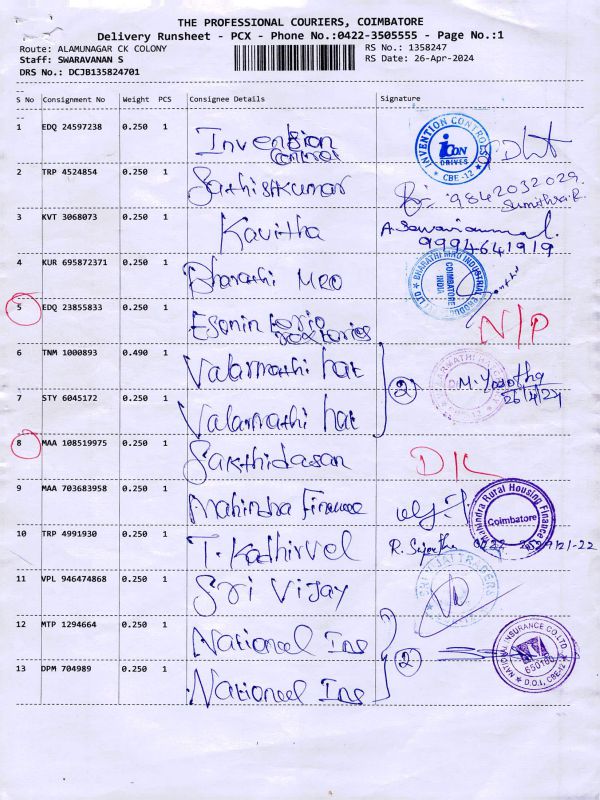 THE PROFESSIONAL COURIERS, COIMBATORE
Delivery Runsheet - PCX - Phone No.:0422-3505555 - Page No.:1
Route: ALAMUNAGAR CK COLONY RS No.: 1358247
Staff: SWARAVANAN S RS Date: 26-Apr-2024
DRS No.: DCJB135824701
S No Consignment No Weight PCS Consignee Details Signature
1 EDQ 24597238 0.250 1 Invention control INVENTION CONTROLS iCON DRIVES CBE-12
2 TRP 4524854 0.250 1 Sathishkumar 9842032029
Sumithra.R.
3 KVT 3068073 0.250 1 Kavitha
9994641919
4 KUR 695872371 0.250 1 Bharathi MRO BHARATHI MRO INDUSTRIAL COIMBATORE INDIA
5 EDQ 23855833 0.250 1 N/P
6 TNM 1000893 0.490 1 Valarmathi hat 2
26/4/24
7 STY 6045172 0.250 1 Valarmathi hat
8 MAA 108519975 0.250 1 Sakthidasan DK
9 MAA 703683958 0.250 1 Mahindra Finance Mahindra Rural Housing Finance Coimbatore
10 TRP 4991930 0.250 1 T. Kathirvel
11 VPL 946474868 0.250 1 Sri Vijay
12 MTP 1294664 0.250 1 National Ins 2 NATIONAL INSURANCE CO. LTD. 650160 D.O.I, CBE-12
13 DPM 704989 0.250 1 National Ins